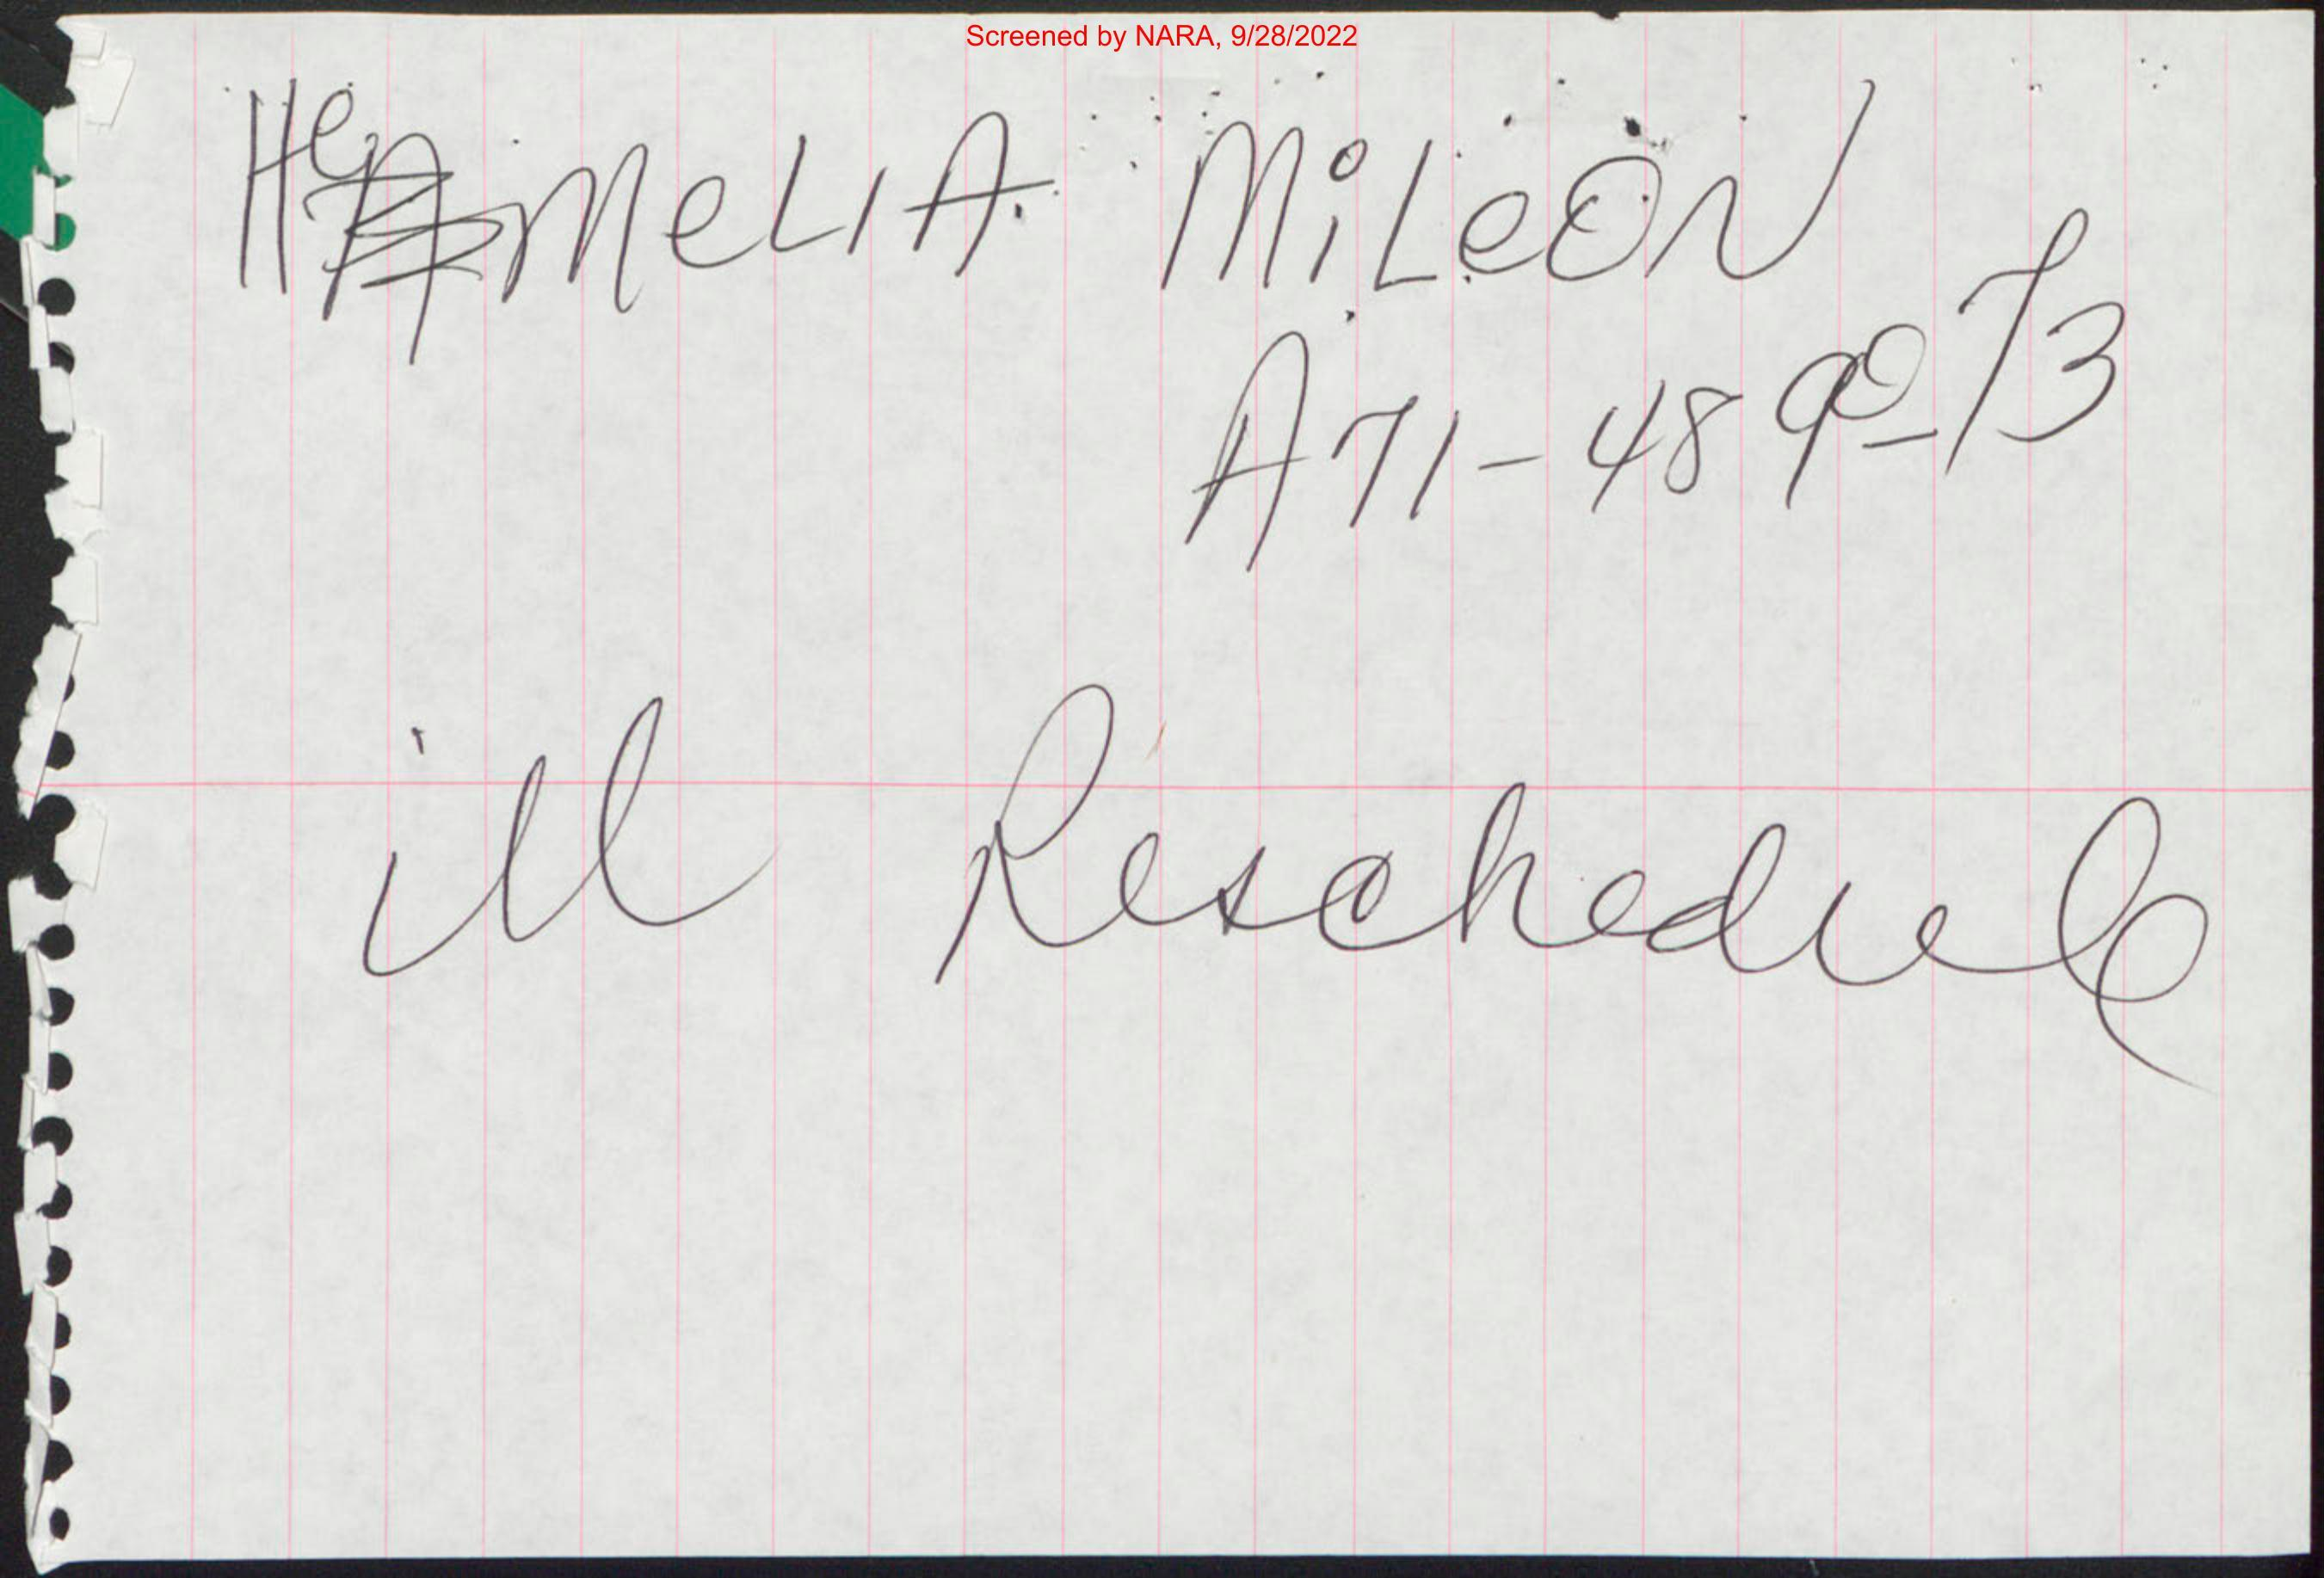 Screened by NARA, 9/28/2022
HeMeLIA MiLeON
A71-4890-73
ill Reschedule